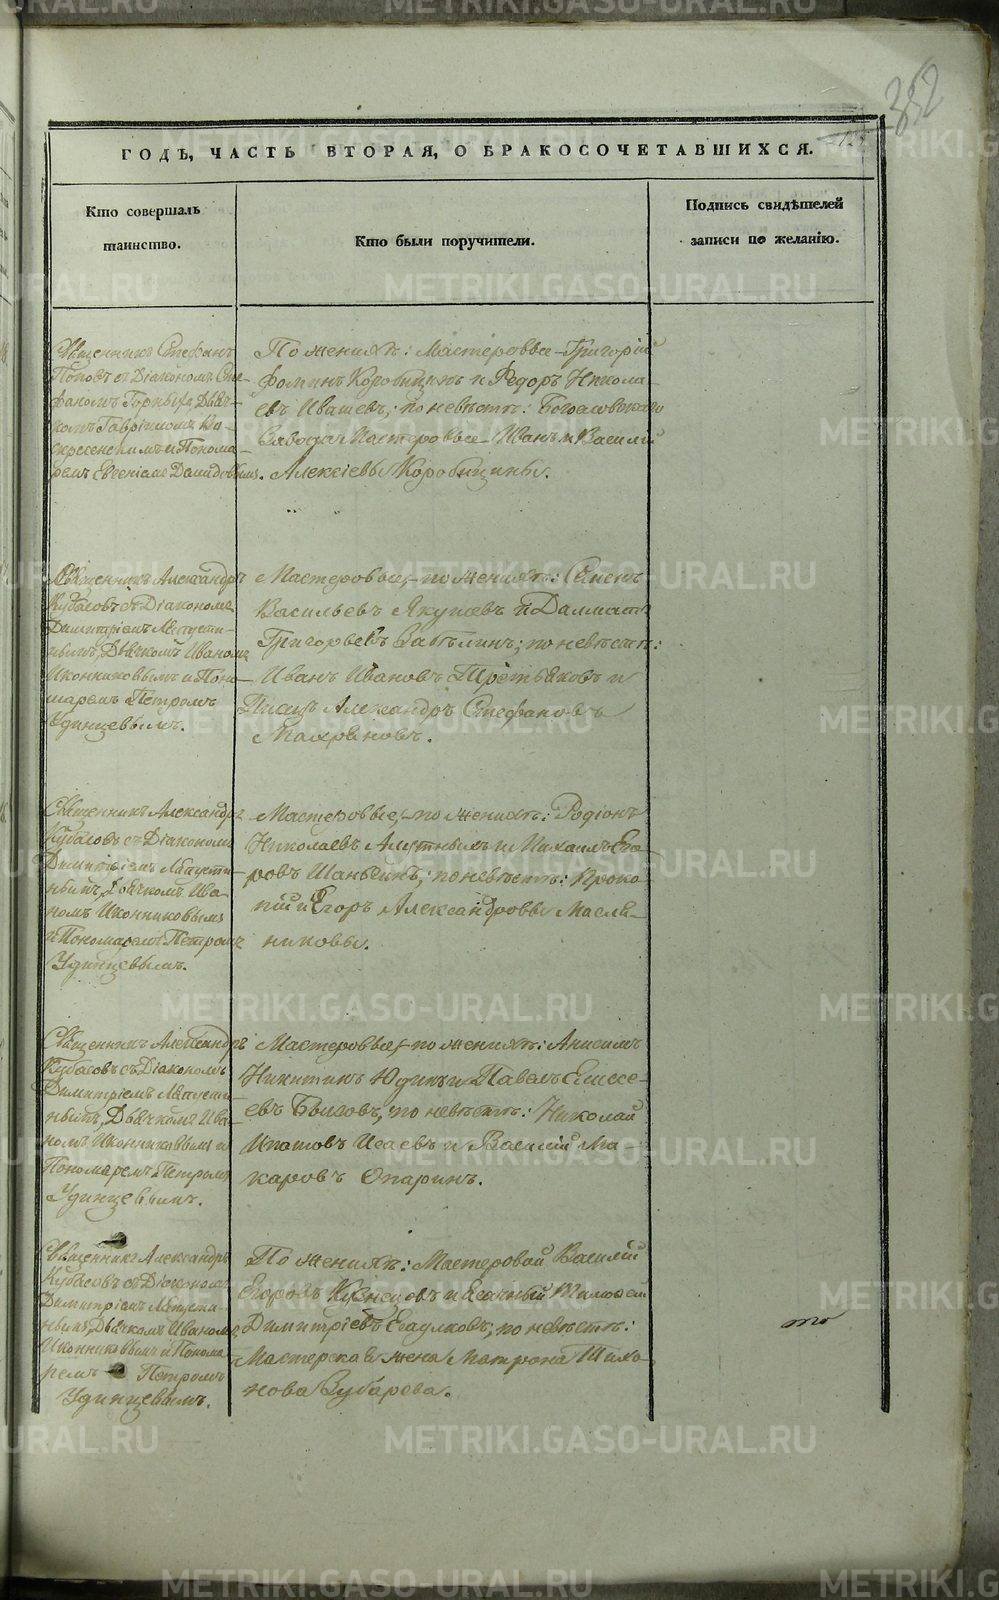 352
ГОДѢ, ЧАСТЬ ВТОРАЯ, О БРАКОСОЧЕТАВШИХСЯ.
Кто совершалъ
таинство.
Кто были поручители.
Подпись свидѣтелей
записи по желанію.
Священникъ Стефанъ
Поповъ съ Діакономъ Сте-
фаномъ Дьяч-
комъ Гавріиломъ Во-
скресенскимъ и Понома-
ремъ Евгеніемъ Давидовымъ.
По женихѣ: Мастеровые Григорій
Фоминъ Коробицынъ и Ѳедоръ Никола-
евъ Ивашевъ; по невѣстѣ: Богословскаго
Завода Мастеровые Иванъ и Василій
Алексіевы Коробицины.
Священникъ Александръ
Кубасовъ съ Діакономъ
Димитріемъ
Дьячкомъ Иваномъ
Иконниковымъ и Поно-
маремъ Петромъ
Удинцевымъ.
Мастеровые, по женихѣ: Семенъ
Васильевъ Якушевъ и Далматъ
Григорьевъ Забѣлинъ; по невѣстѣ:
Иванъ Ивановъ Третьяковъ и
Писецъ Александръ Стефановъ
Махриновъ.
Священникъ Александръ
Кубасовъ съ Діакономъ
Димитріемъ
Дьячкомъ Ива-
номъ Иконниковымъ
и Пономаремъ Петромъ
Удинцевымъ.
Мастеровые, по женихѣ: Родіонъ
Николаевъ и Михаилъ Его-
ровъ Шаньгинъ; по невѣстѣ: Проко-
пій и Егоръ Александровы Масле-
никовы.
Священникъ Александръ
Кубасовъ съ Діакономъ
Димитріемъ
Дьячкомъ Ива-
номъ Иконниковымъ и
Пономаремъ Петромъ
Удинцевымъ.
Мастеровые, по женихѣ: Анисимъ
Никитинъ Юдинъ и Павелъ Елисе-
евъ Бызовъ, по невѣстѣ: Николай
Ипатовъ Исаевъ и Василій Ма-
каровъ Опаринъ.
Священникъ Александръ
Кубасовъ съ Діакономъ
Димитріемъ
Дьячкомъ Иваномъ
Иконниковымъ и Понома-
ремъ Петромъ
Удинцевымъ.
По женихѣ: Мастеровой Василій
Егоровъ Кузнецовъ и Тимофей
Димитріевъ по невѣстѣ:
Мастерская жена Матрона Тихо-
нова Зубарева.
METRIKI.GASO-URAL.RU